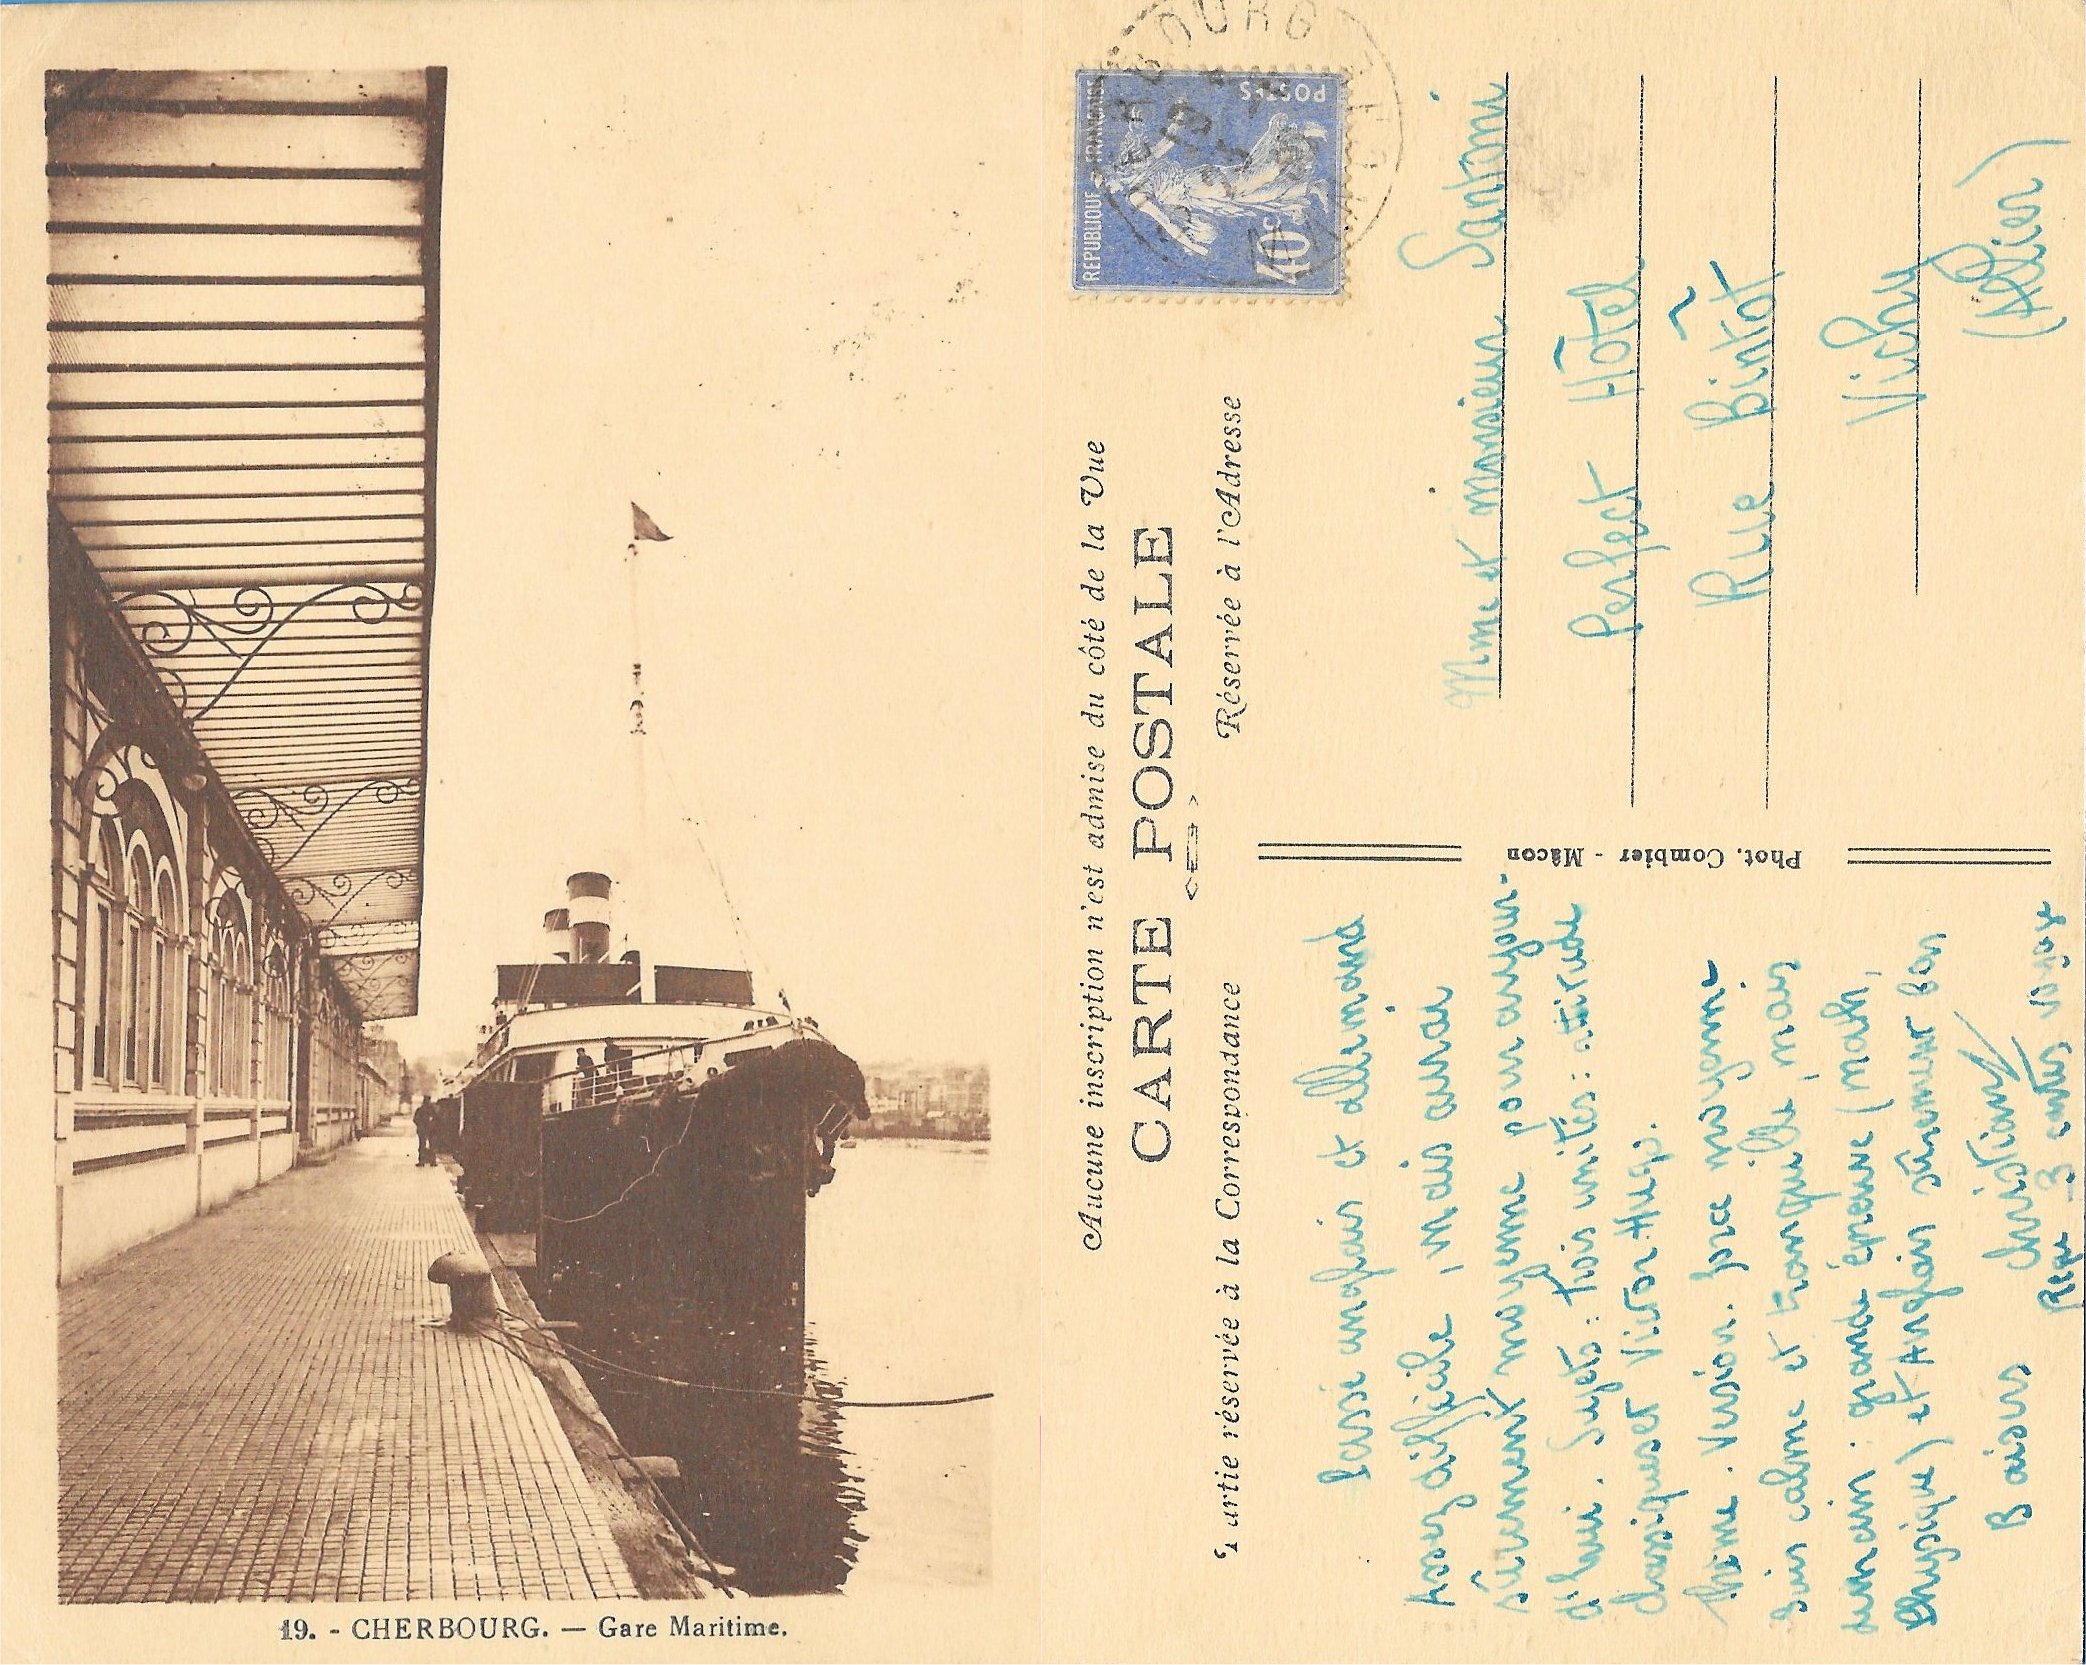 19. - CHERBOURG. — Gare Maritime.
Aucune inscription n'est admise du côté de la Vue
CARTE POSTALE
Partie réservée à la Correspondance
Réservée à l'Adresse
REPUBLIQUE FRANÇAISE
POSTES
40c
Phot. Combier - Mâcon
Passé anglais et allemand
Assez difficile, mais aurai
sûrement moyenne pour aujour-
d'hui. Sujets: trois unités: attitude
classiques et Victor Hugo.
thème. Version. Pense moyenne
Suis calme et tranquille, mais
demain: grande épreuve (math,
Physique) et Anglais sûrement bon
Baisers Christian
Reçu 3 cartes voyage
Mme et Monsieur Santini
Perfect Hôtel
Rue Bintôt
Vichy
(Allier)